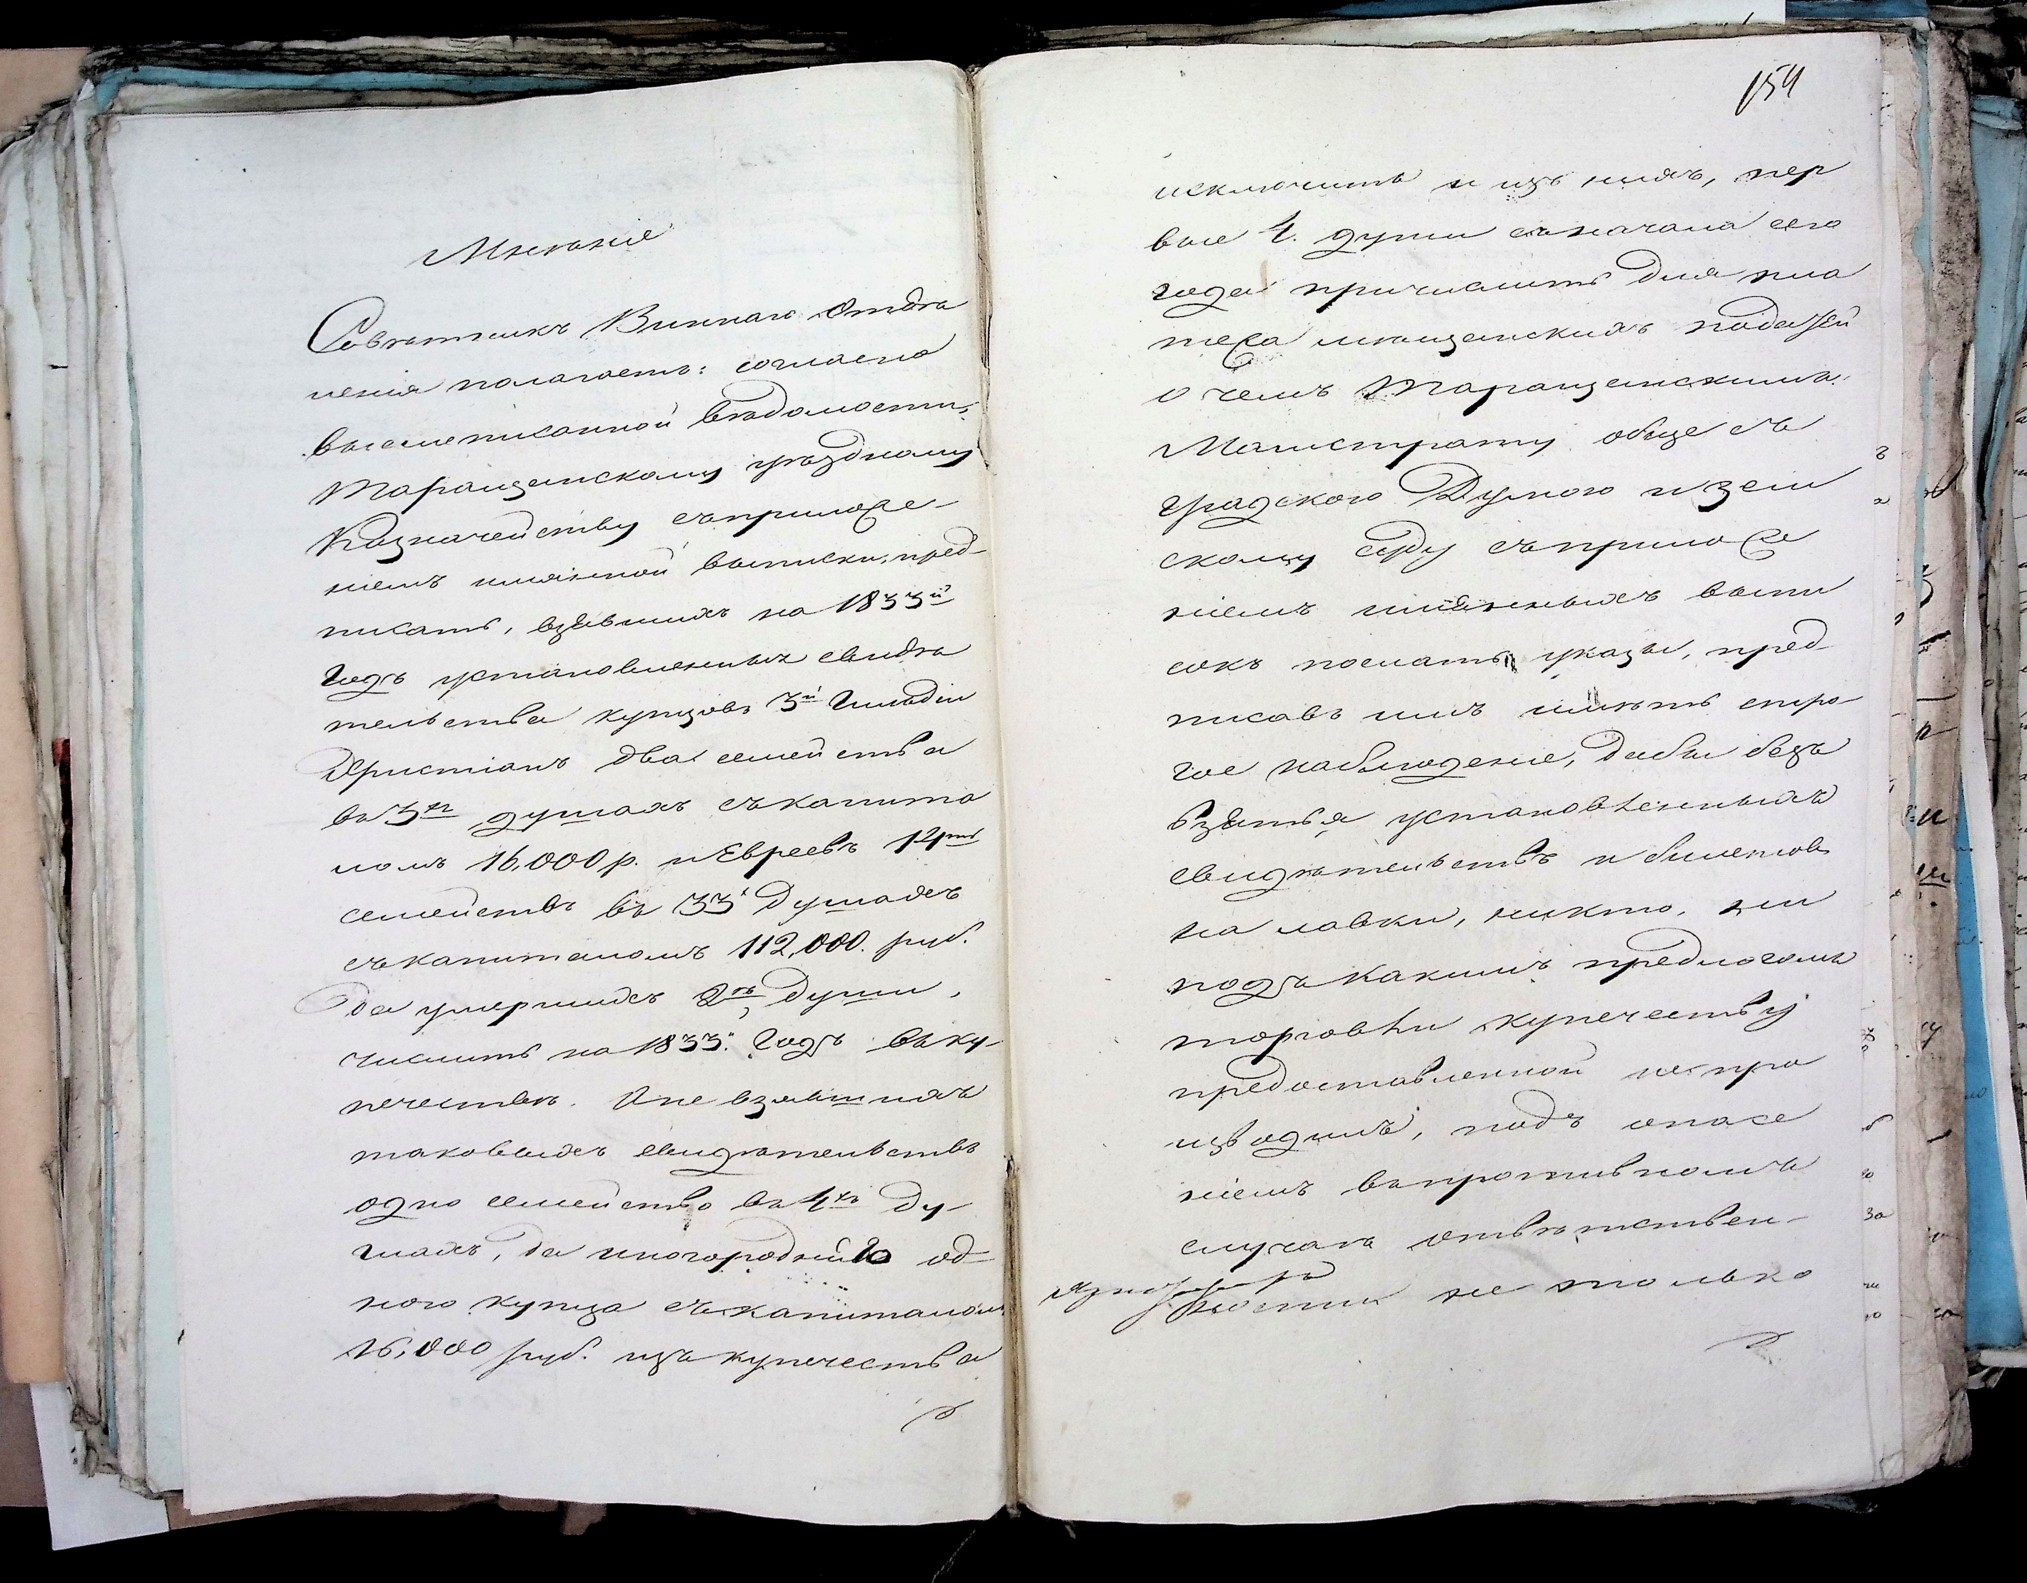 Мнѣніе
Совѣтникъ Виннаго Отдѣ
ленія полагаетъ: согласно
вышеписанной вѣдомости,
Таращанскому уѣздному
Казначейству съприложе-
ніемъ имянной выписки, пред-
писать, взявшихъ на 1833й
годъ установленныя свидѣ
тельства купцовъ 3й Гильдіи
Христіанъ два семейства
въ 3хъ душахъ съ капита
ломъ 16,000 р. и Евреевъ 14ть
семействъ въ 33х душахъ
съкапиталомъ 112,000. руб.
да умершихъ 2ѣ души,
числить на 1833й годъ въ ку-
печествѣ. А не взявшихъ
таковыхъ свидѣтельствъ
одно семейство въ 4хъ ду-
шахъ, да иногороднiго од-
ного купца съкапиталомъ
16,000 руб. изъ купечества
154
исключить и изъ нихъ, пер
вые 4. души съначала сего
года причислить для пла
тежа мѣщанскихъ податей
о чемъ Таращанскимъ
Магистрату обще съ
градскою Думою и Зем
скому суду съприложе
ніемъ имянныхъ выпи
сокъ послать указы, пред
писавъ имъ имѣть стро-
гое наблюденіе, дабы безъ
взятья установленныхъ
свидѣтельствъ и билетовъ
на лавки, никто, ни
подъ какимъ предлогомъ
торговли купечеству
предоставленной непро
изводилъ, подъ опасе
ніемъ въпротивномъ
случаѣ отвѣтствен-
ности не только